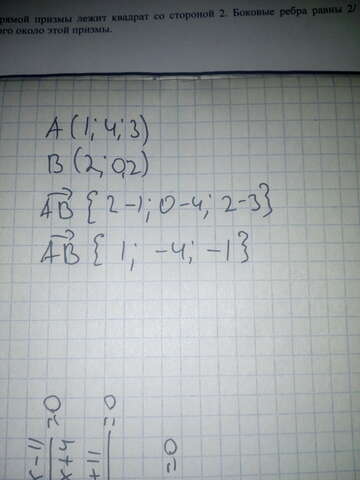 рямой призмы лежит квадрат со стороной 2. Боковые ребра равны 2/
ого около этой призмы.
A (1; 4; 3)
B (2; 0,2)
AB { 2-1; 0-4; 2-3}
AB { 1; -4; -1}
x-11
x+4
=0
+11
=0
=0